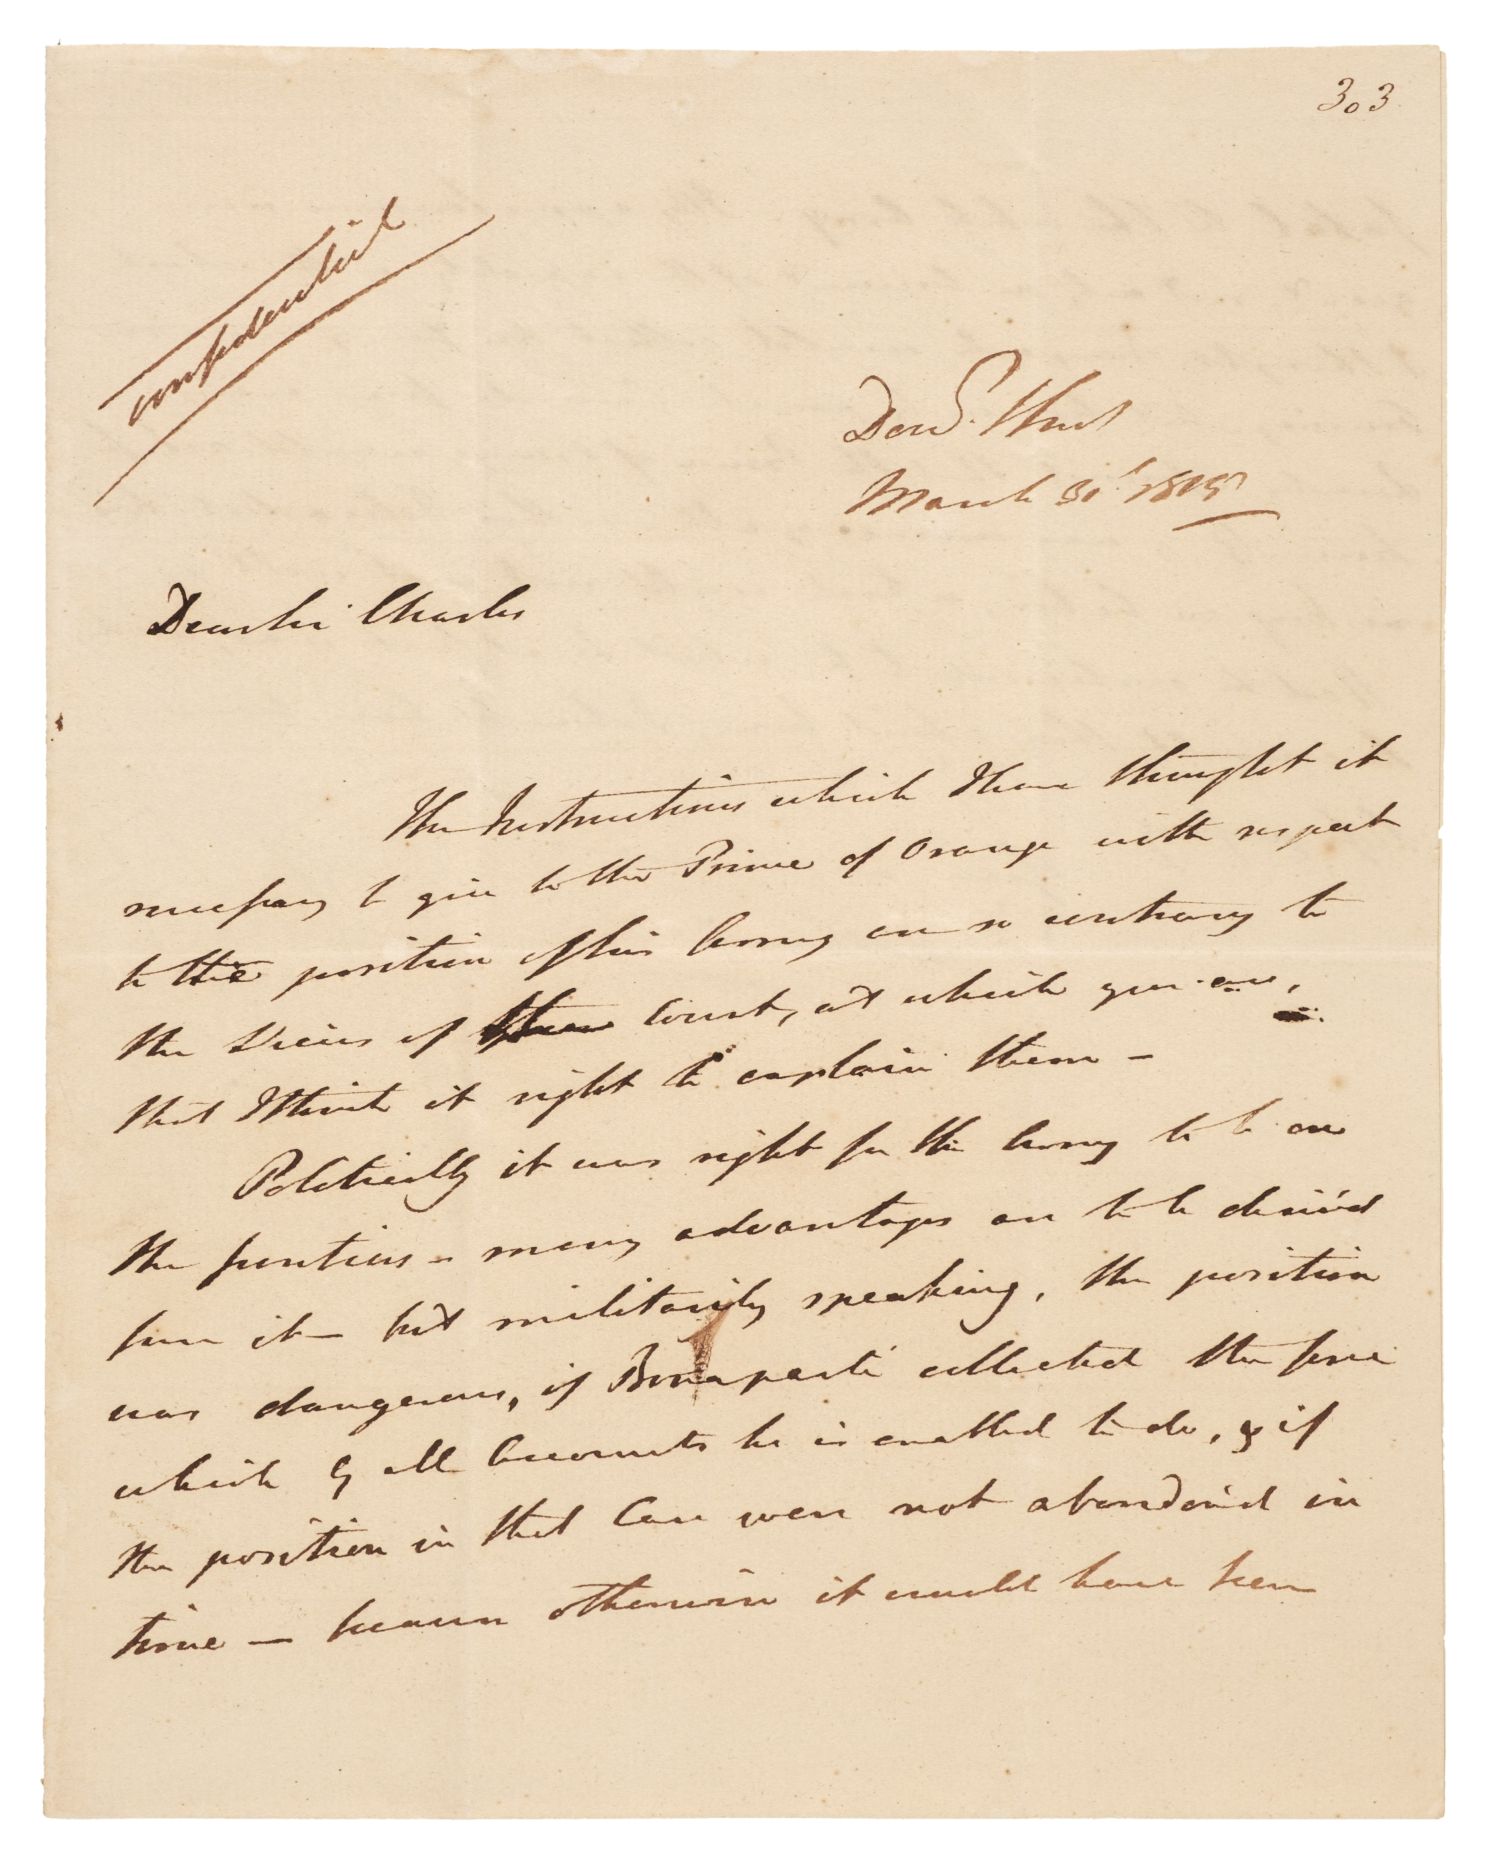 303
confidential
Dow.g Street
March 31st 1815
Dear Sir Charles
The Instructions which I have thought it
necessary to give to the Prince of Orange with respect
to the position of his Army are so contrary to
the Views of the Court, at which you are,
that I think it right to explain them —
Politically it was right for the Army to be on
the frontiers — many advantages are to be derived
from it — but militarily speaking, the position
was dangerous, if Bonaparte collected the force
which by all Accounts he is enabled to do, & if
the position in that Case were not abandon'd in
time — because otherwise it would have been